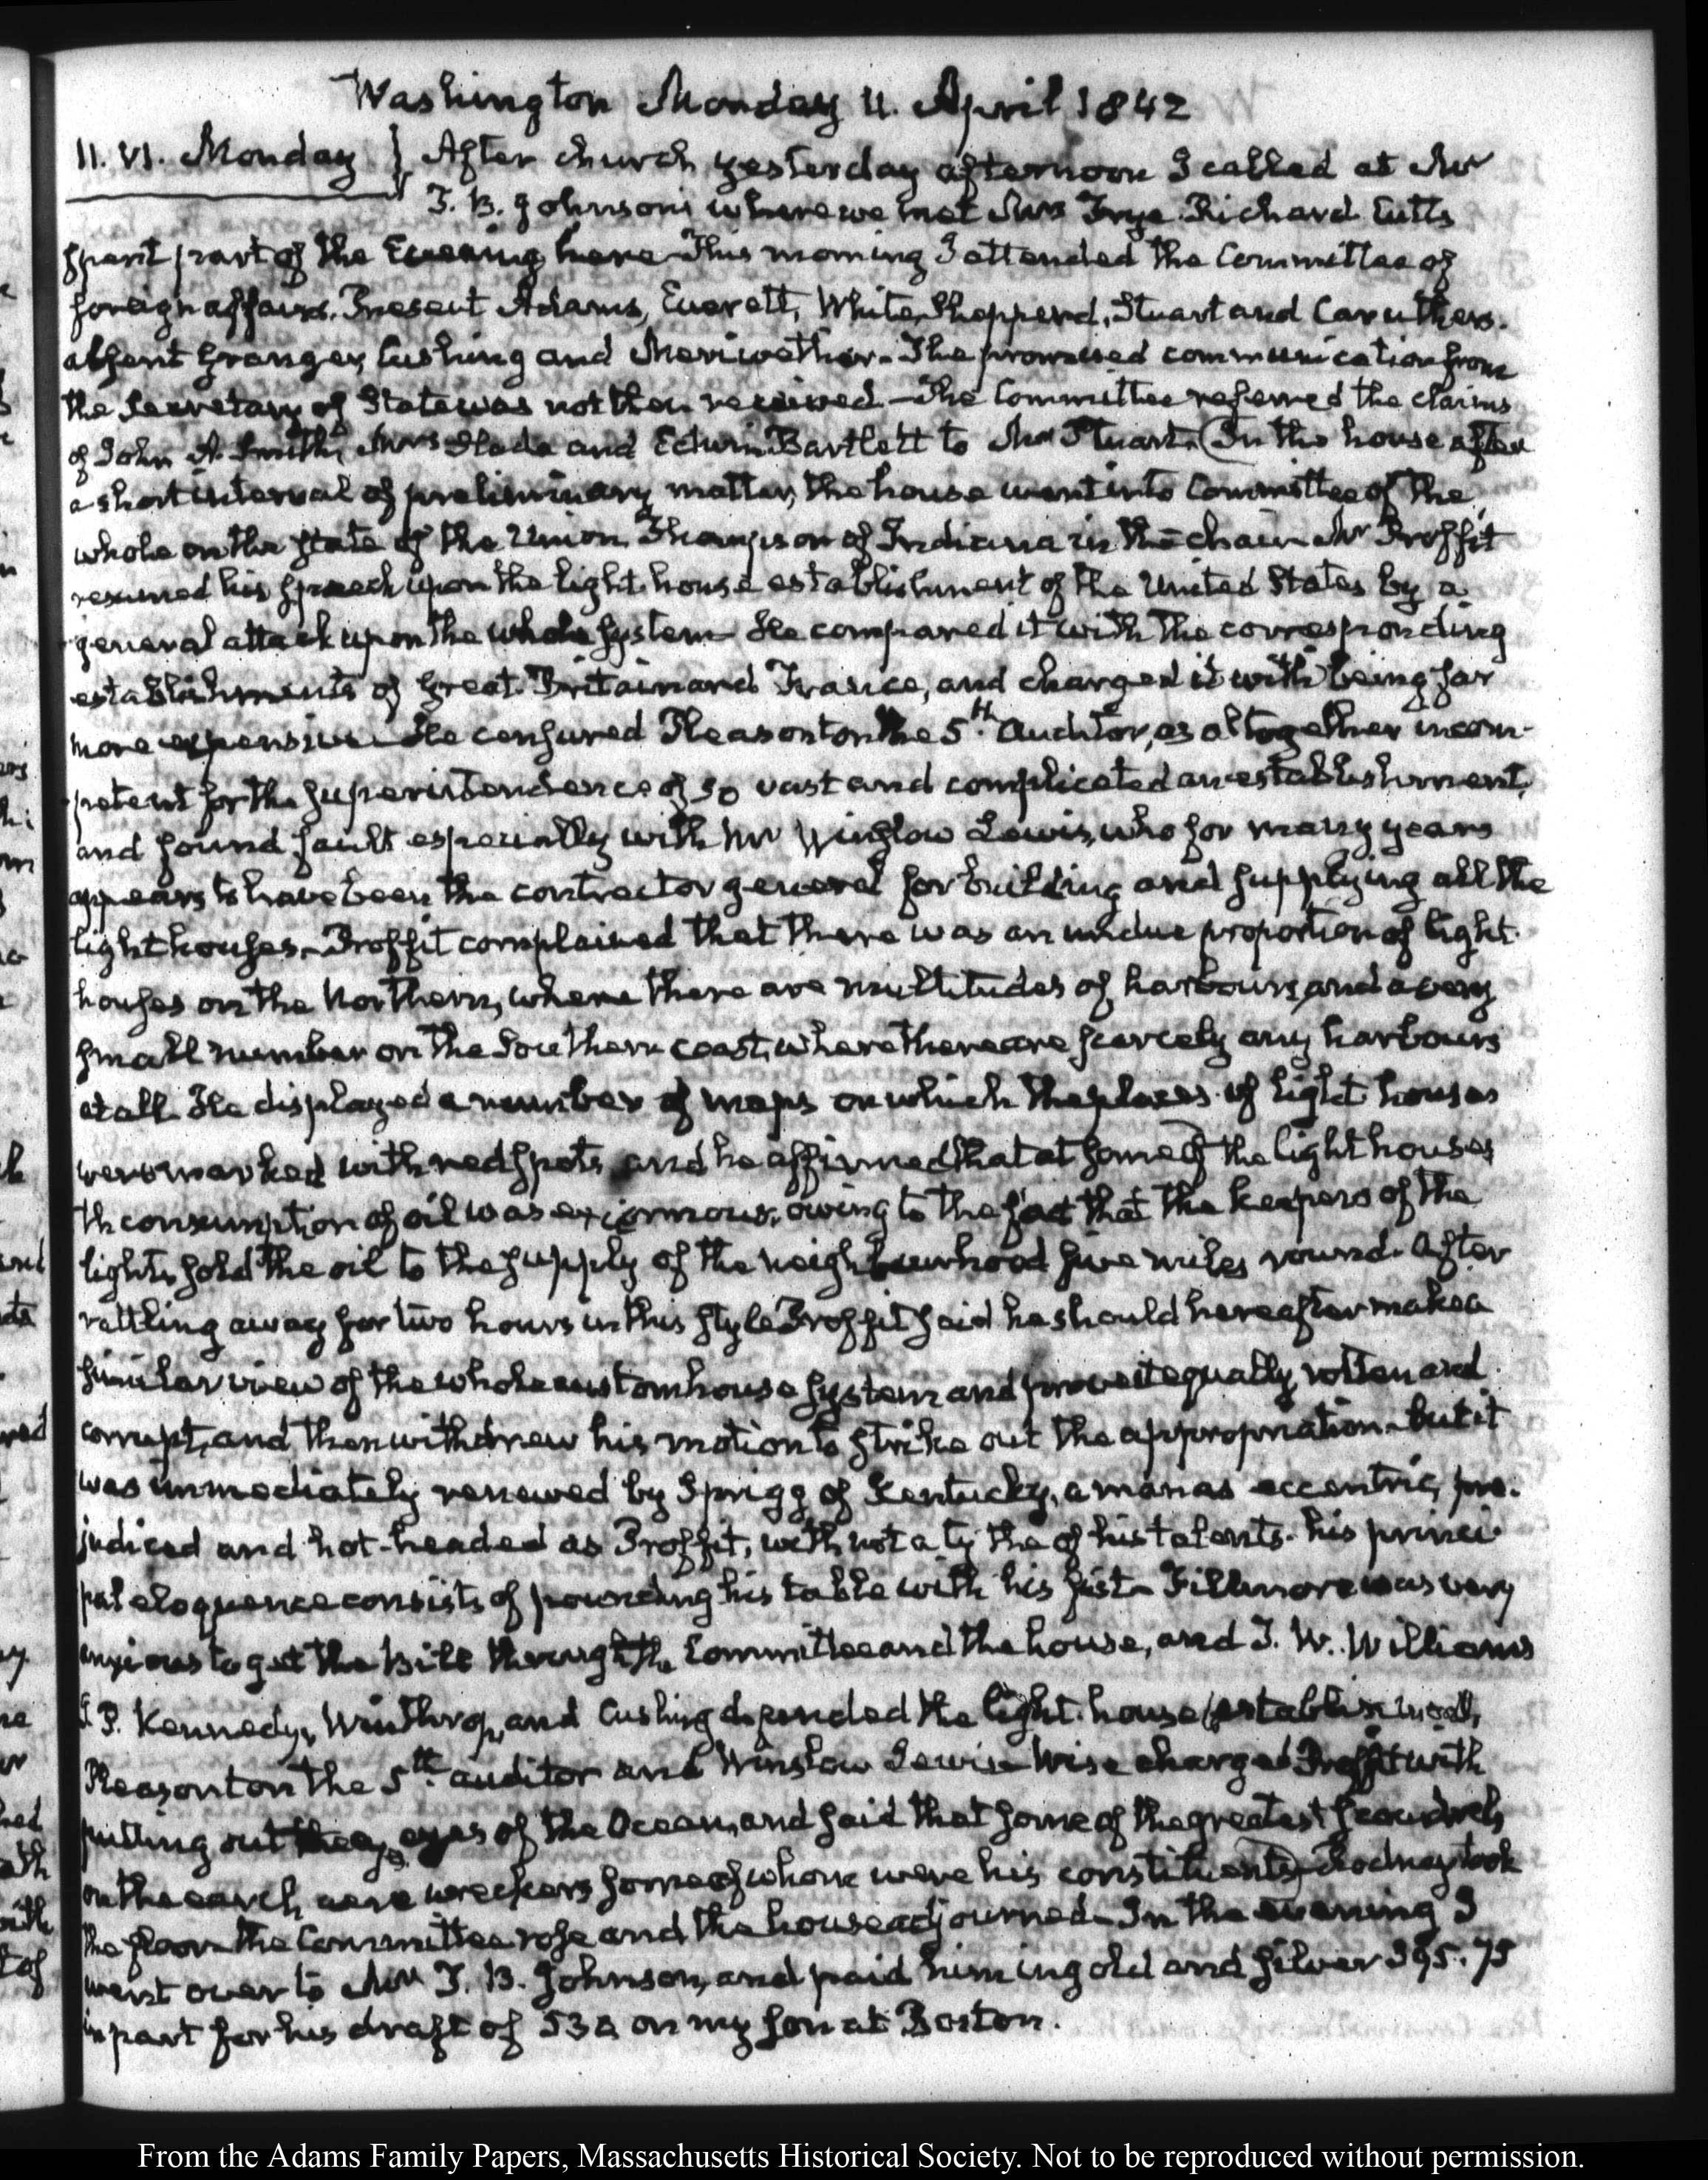 Washington Monday 11. April 1842
11. VI. Monday } After church yesterday afternoon I called at Mr
T. B. Johnson's where we met Mrs Frye. Richard Cutts
spent part of the Evening here. This morning I attended the Committee of
foreign affairs. Present Adams, Everett, White, Shepperd, Stuart and Caruthers.
absent Granger, Cushing and Meriwether. The promised communication from
the Secretary of State was not then received. The Committee referred the claims
of John A. Smith, Mrs Slade and Edwin Bartlett to Mr Stuart. (In the house after
a short interval of preliminary matter, the house went into Committee of the
whole on the state of the Union. Thompson of Indiana in the chair. Mr Proffit
resumed his speech upon the light-house establishment of the United States by a
general attack upon the whole system. He compared it with the corresponding
establishments of Great-Britain and France, and charged it with being far
more expensive. He censured Pleasonton the 5th. Auditor, as altogether incom-
petent for the superintendence of so vast and complicated an establishment,
and found fault especially with Mr Winslow Lewis, who for many years
appears to have been the contractor general for building and supplying all the
light houses. Proffit complained that there was an undue proportion of light-
houses on the Northern, where there are multitudes of harbours, and a very
small number on the Southern coast, where there are scarcely any harbours
at all. He displayed a number of maps on which the places of light-houses
were marked with red spots, and he affirmed that at some of the light houses
th consumption of oil was enormous, owing to the fact that the keepers of the
lights, sold the oil to the supply of the neighbourhood five miles round. After
rattling away for two hours in this style Proffit said he should hereafter make a
similar view of the whole custom house system and prove it equally rotten and
corrupt, and then withdrew his motion to strike out the appropriation. but it
was immediately renewed by Sprigg of Kentucky, a man as eccentric, pre-
judiced and hot-headed as Proffit, with not a tythe of his talents. his princi-
pal eloquence consists of pounding his table with his fist. Fillmore was very
anxious to get the Bill through the Committee and the house, and J. W. Williams
J. P. Kennedy, Winthrop, and Cushing defended the light-house establishment,
Pleasonton the 5th. auditor and Winslow Lewis. Wise charged Proffit with
putting out the eyes of the Ocean, and said that some of the greatest scoundrels
on the earth were wreckers some of whom were his constituents) Rodney took
the floor. the Committee rose and the house adjourned. In the evening I
went over to Mr T. B. Johnson, and paid him in gold and silver 395.75
in part for his draft of 530 on my son at Boston.
From the Adams Family Papers, Massachusetts Historical Society. Not to be reproduced without permission.